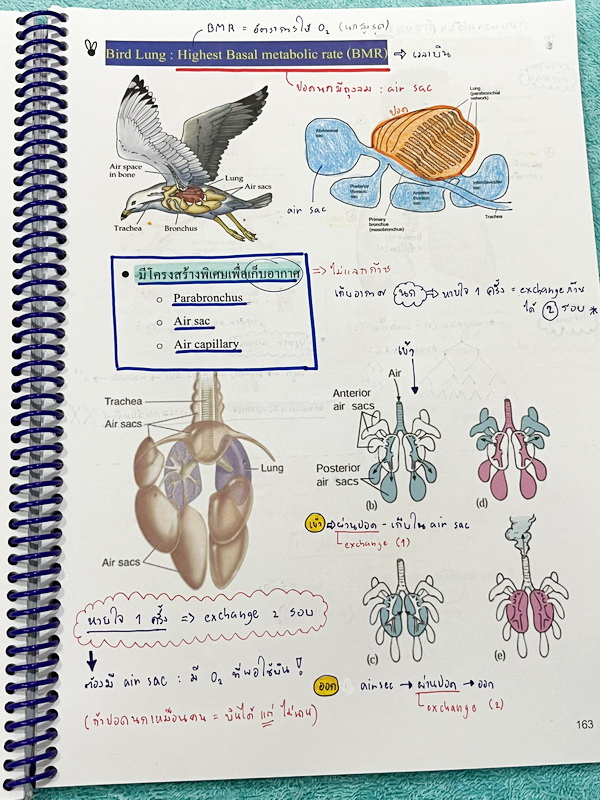 BMR = อัตราการใช้ O₂ (นกสูงสุด)
Bird Lung : Highest Basal metabolic rate (BMR) ⇒ เวลาบิน
ปอดนกมีถุงลม : air sac
Lung
(parabronchial
network)
ปอด
Abdominal
sac
Air space
in bone
Lung
Air sacs
Posterior
thoracic
sac
Anterior
thoracic
sac
Interclavicular
sac
air sac
Trachea
Bronchus
Primary
bronchus
(mesobronchus)
Trachea
• มีโครงสร้างพิเศษเพื่อเก็บอากาศ ⇒ ไม่แลกก๊าซ
○ Parabronchus
○ Air sac
○ Air capillary
เก็บอากาศ นก ⇒ หายใจ 1 ครั้ง = exchange ก๊าซ
ได้ 2 รอบ *
เข้า
Air
Trachea
Air sacs
Lung
Air sacs
Anterior
air sacs
Posterior
air sacs
(b)
(d)
เข้า ⇒ ผ่านปอด - เก็บใน air sac
exchange (1)
หายใจ 1 ครั้ง ⇒ exchange 2 รอบ
(c)
(e)
ต้องมี air sac : มี O₂ ที่พอใช้บิน !
ออก airsac → ผ่านปอด → ออก
exchange (2)
(ถ้าปอดนกเหมือนคน = บินได้ แต่ ไม่นาน)
163